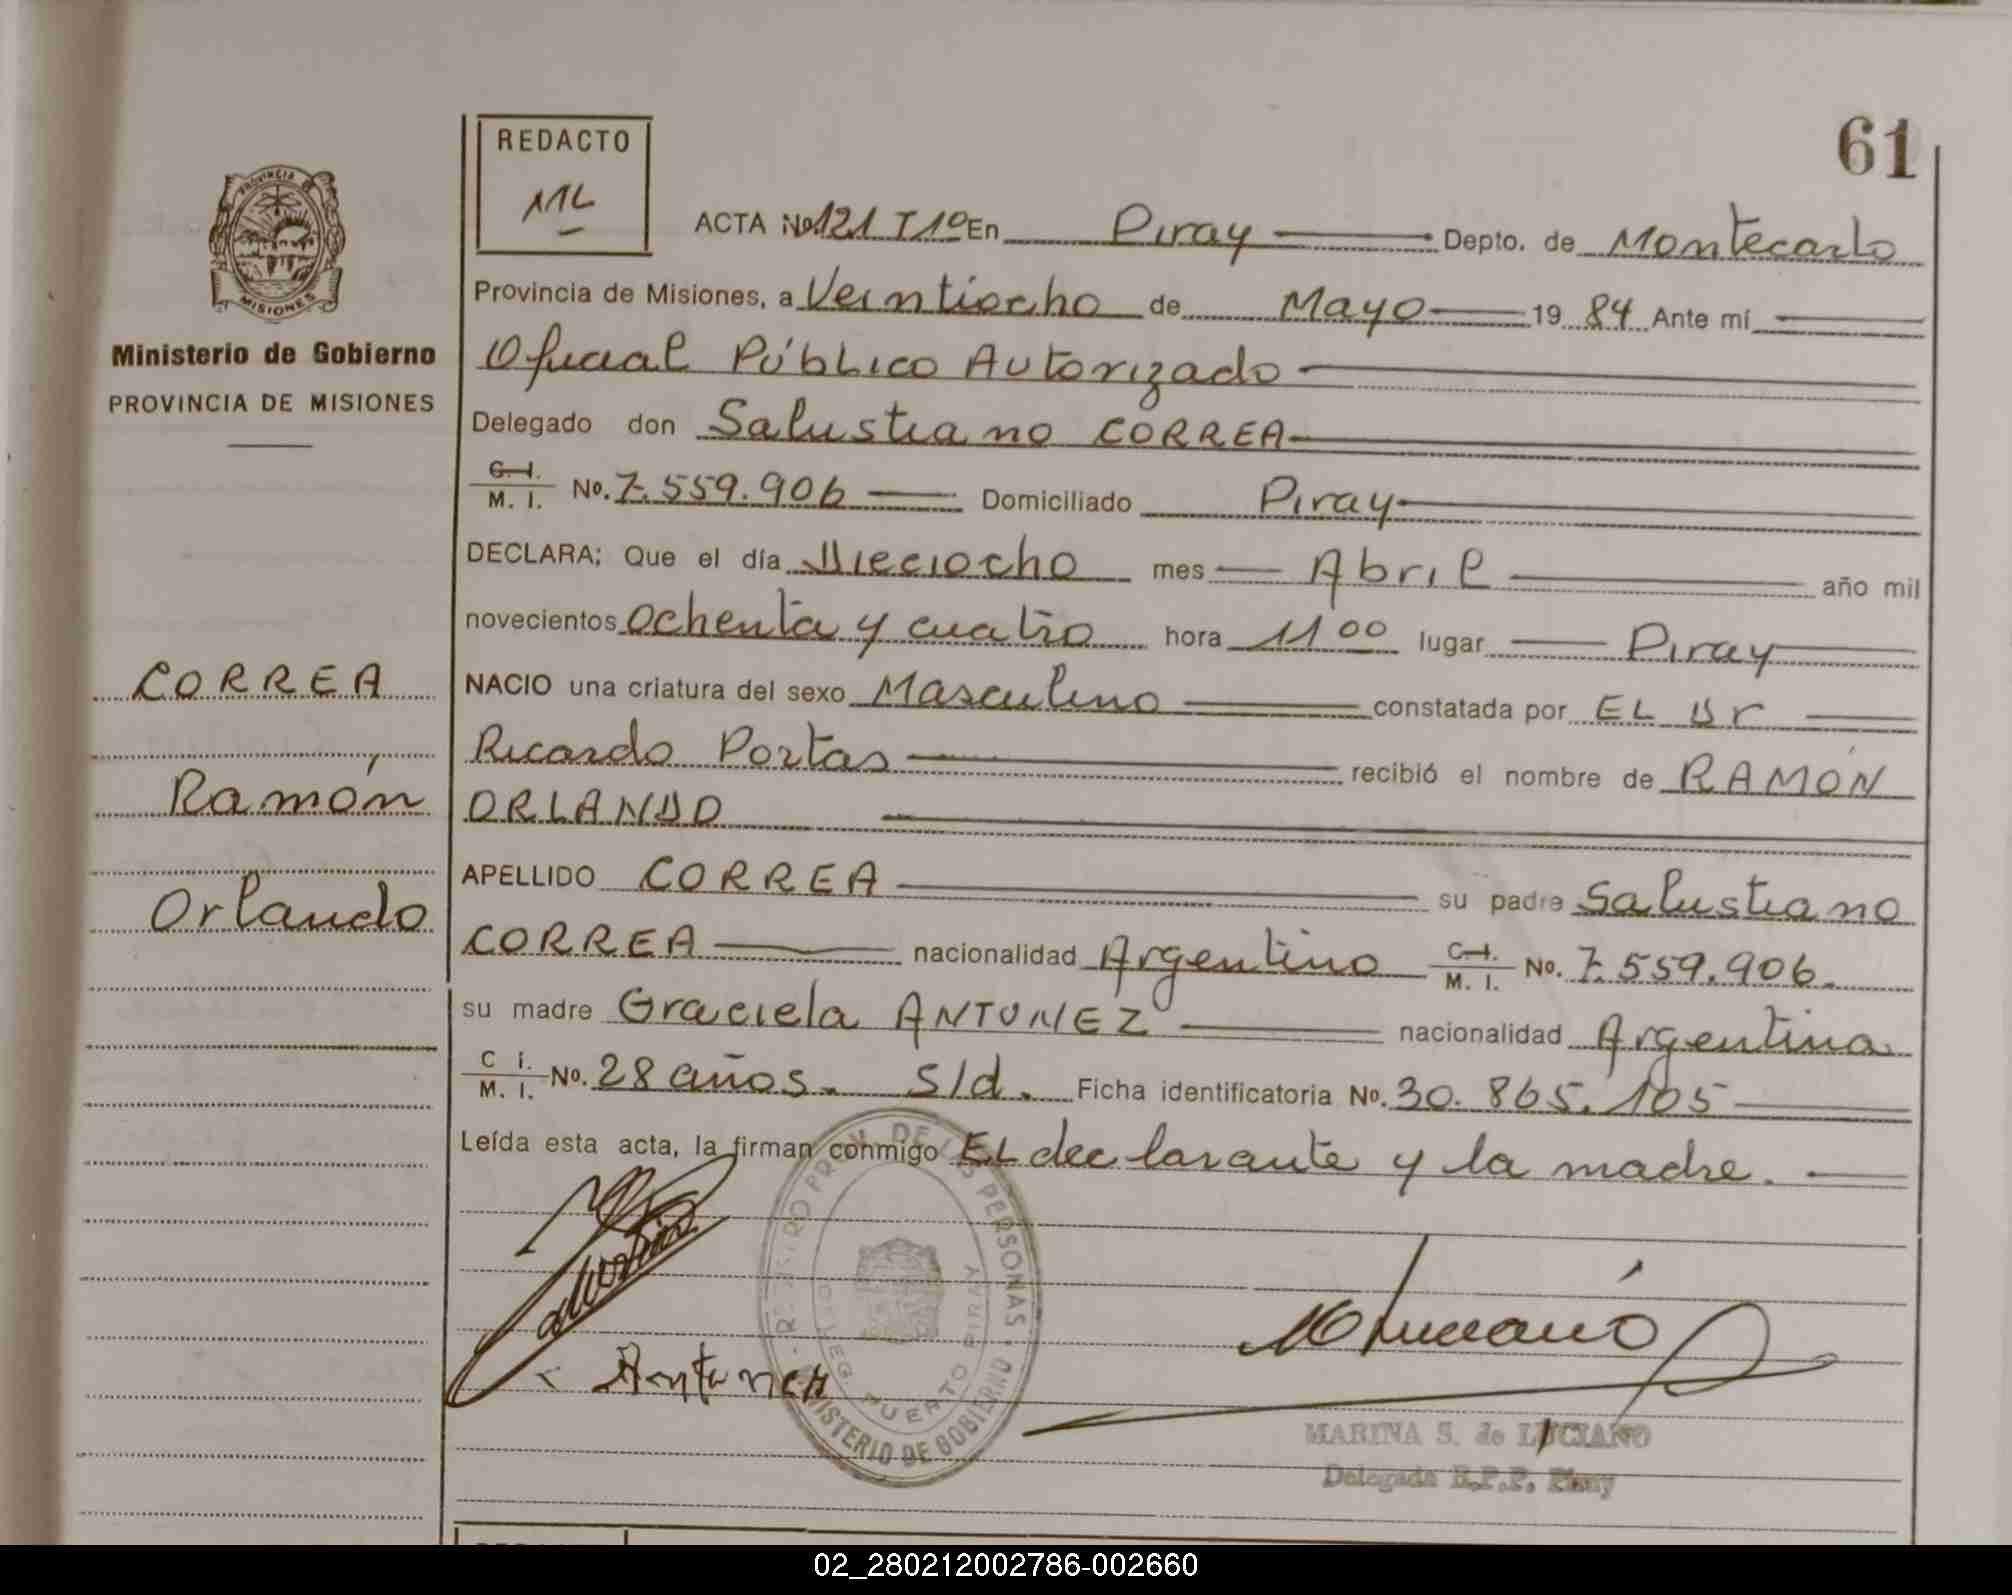 61
REDACTO
ML
PROVINCIA DE
MISIONES
Ministerio de Gobierno
PROVINCIA DE MISIONES
CORREA
Ramón
Orlando
ACTA No 121 T1º En Piray Depto. de Montecarlo
Provincia de Misiones, a Veintiocho de Mayo 19 84 Ante mí
Oficial Público Autorizado
Delegado don Salustiano CORREA
C. I. / M. I. No. 7.559.906 Domiciliado Piray
DECLARA; Que el día Dieciocho mes Abril año mil
novecientos ochenta y cuatro hora 11 00 lugar Piray
NACIO una criatura del sexo Masculino constatada por EL Dr
Ricardo Portas recibió el nombre de RAMÓN
ORLANDO
APELLIDO CORREA su padre Salustiano
CORREA nacionalidad Argentino C. I. / M. I. No. 7.559.906.
su madre Graciela ANTUNEZ nacionalidad Argentina
C. I. / M. I. No. 28 años. S/d. Ficha identificatoria No. 30.865.105
Leída esta acta, la firman conmigo EL declarante y la madre.
REGISTRO PROV. DE LAS PERSONAS
MINISTERIO DE GOBIERNO
DELEG. PUERTO PIRAY
Antunez
MARINA S. de LUCIANO
Delegada R.P.P. Piray
02_280212002786-002660